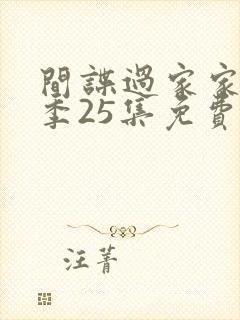 間諜過家家
季25集免費
汪菁